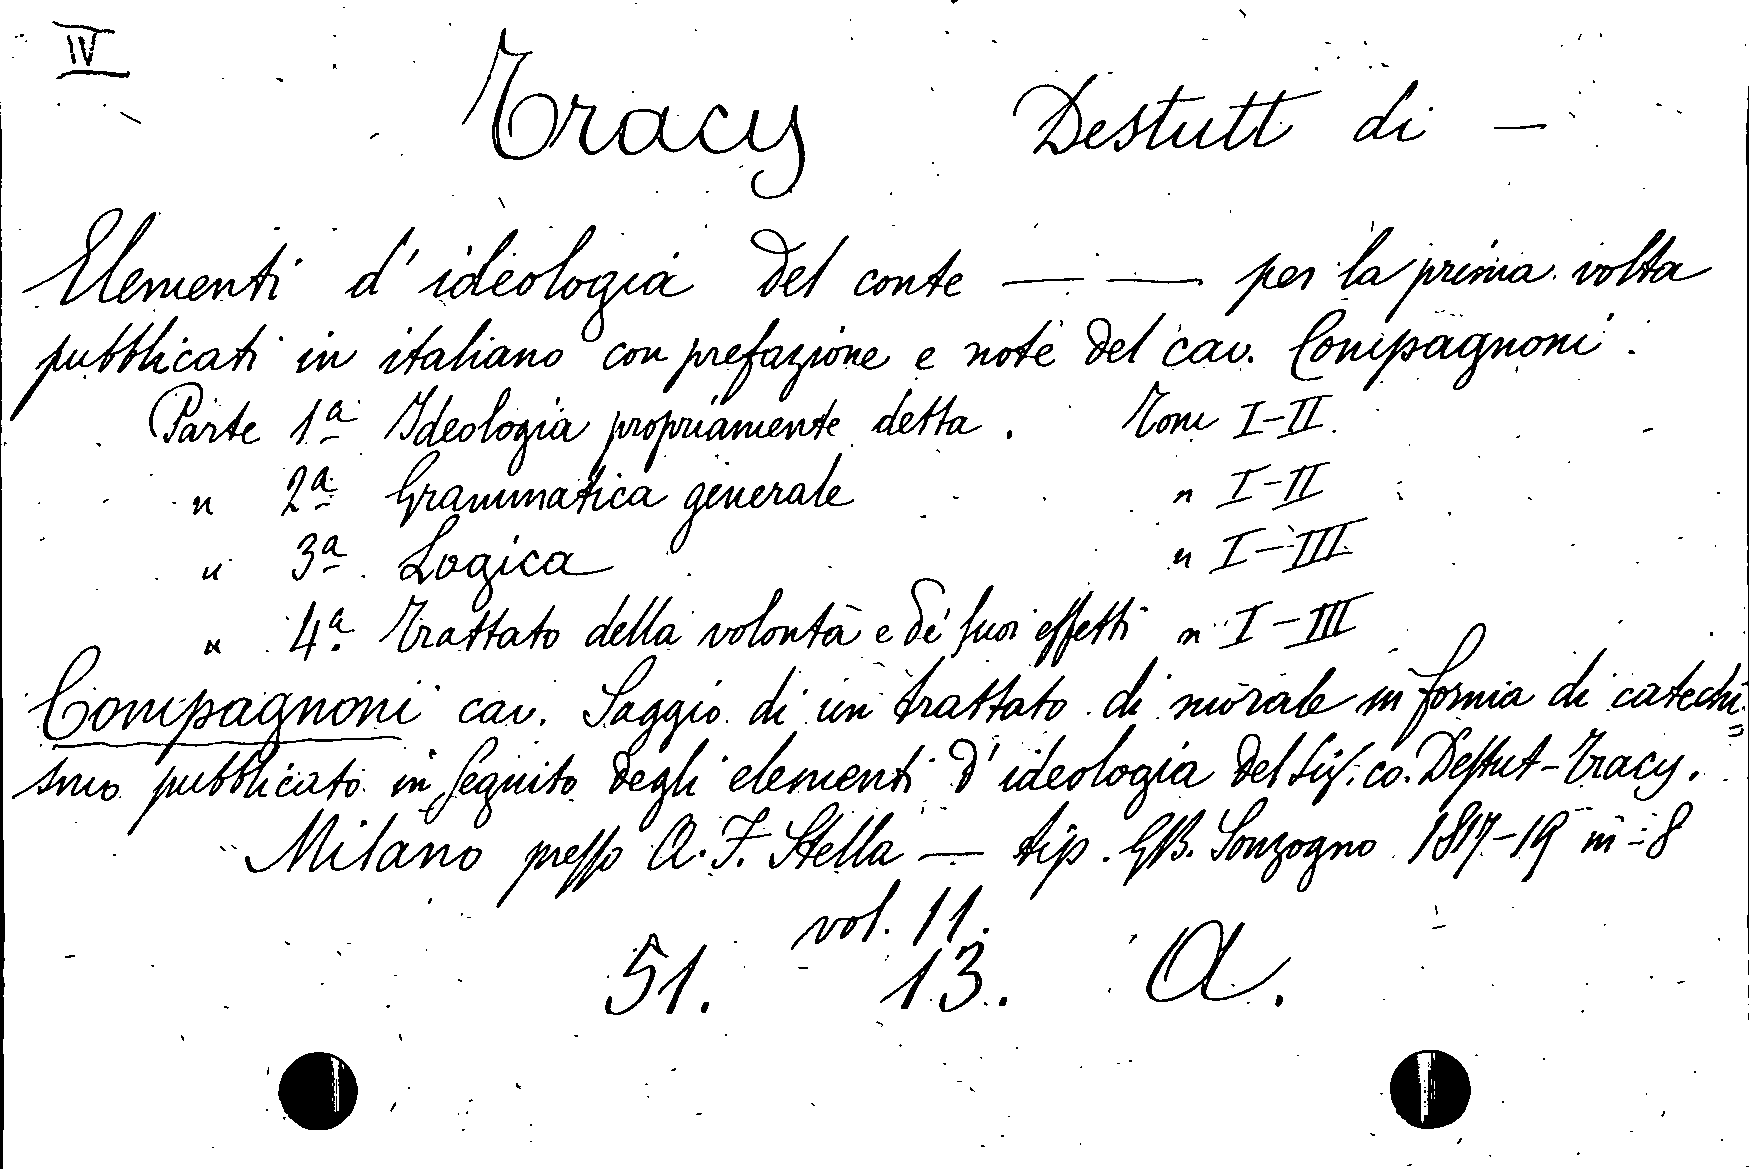 IV
Tracy Destutt di —
Elementi d'ideologia del conte — — per la prima volta
pubblicati in italiano con prefazione e note del cav. Compagnoni.
Parte 1ª Ideologia propriamente detta. Tom I-II.
" 2ª Grammatica generale " I-II
" 3ª Logica " I-III
" 4ª Trattato della volontà e de' suoi effetti " I-III
Compagnoni cav. Saggio di un trattato di morale in forma di catechi=
smo pubblicato in seguito degli elementi d'ideologia del Sig. co. Destut-Tracy.
Milano presso A. F. Stella — tip. G.B. Sonzogno 1817-19 in-8
vol. 11.
51. 13. A.